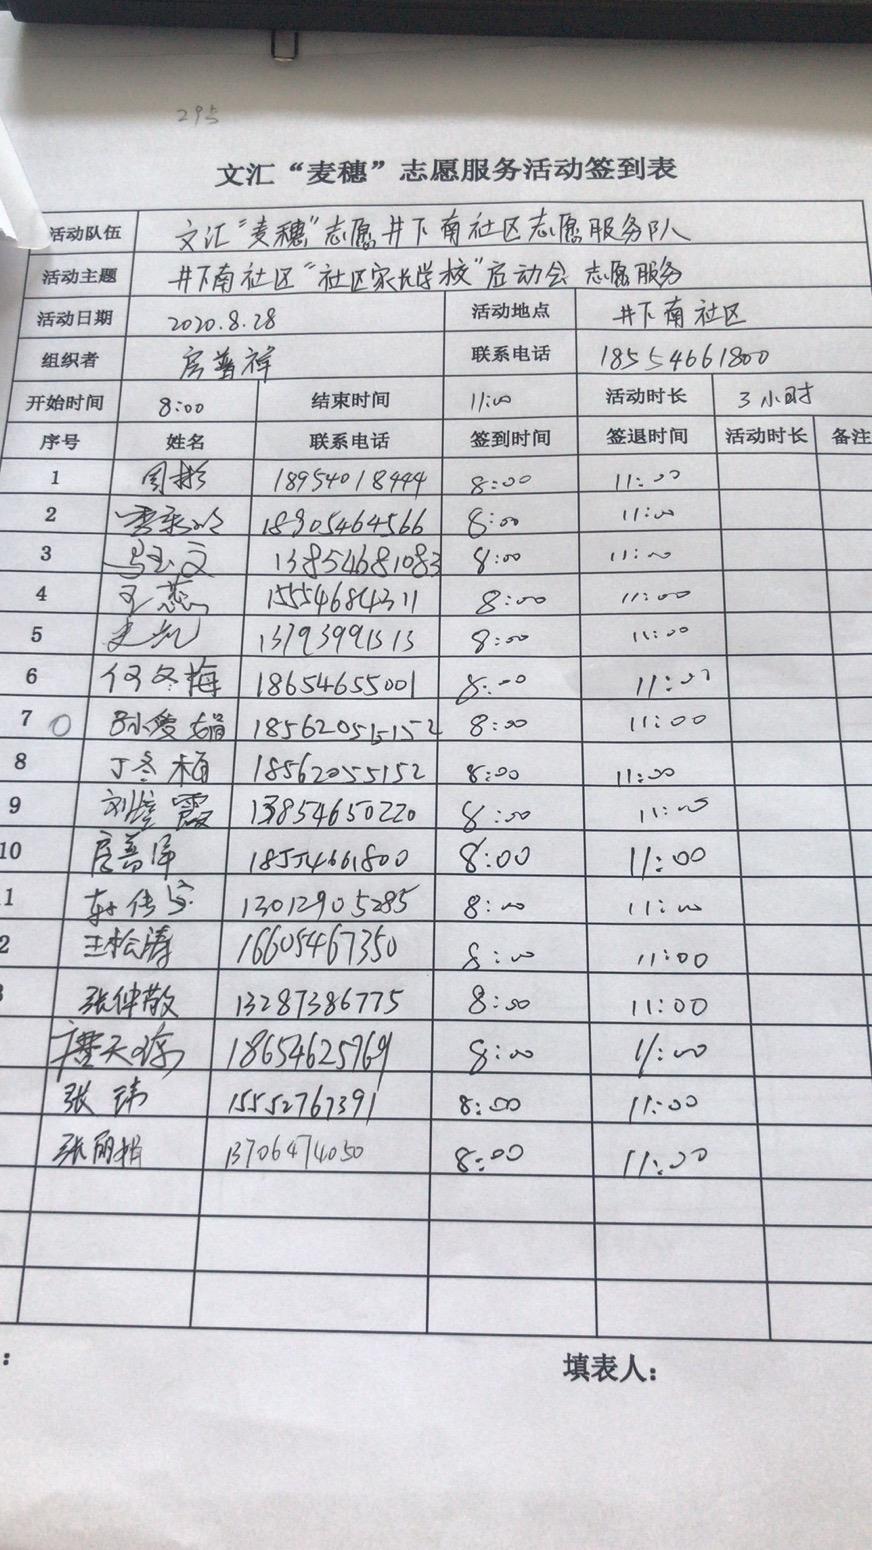 295
文汇“麦穗”志愿服务活动签到表
活动队伍 文汇“麦穗”志愿井下南社区志愿服务队
活动主题 井下南社区“社区家长学校”启动会 志愿服务
活动日期 2020.8.28 活动地点 井下南社区
组织者 房善祥 联系电话 18554661800
开始时间 8:00 结束时间 11:00 活动时长 3小时
序号 姓名 联系电话 签到时间 签退时间 活动时长 备注
1 周彬 18954018444 8:00 11:00
2 18905464566 8:00 11:00
3 马玉文 13854681083 8:00 11:00
4 王蕊 15554684311 8:00 11:00
5 13793991313 8:00 11:00
6 何冬梅 18654655001 8:00 11:00
7 8:00 11:00
8 丁冬梅 18562055152 8:00 11:00
9 霞 13854650220 8:00 11:00
10 房善祥 18554661800 8:00 11:00
1 13012905285 8:00 11:00
2 王松涛 16605467350 8:00 11:00
张仲敬 13287386775 8:00 11:00
18654625769 8:00 11:00
张玮 15552767391 8:00 11:00
张丽娟 13706474050 8:00 11:00
: 填表人: